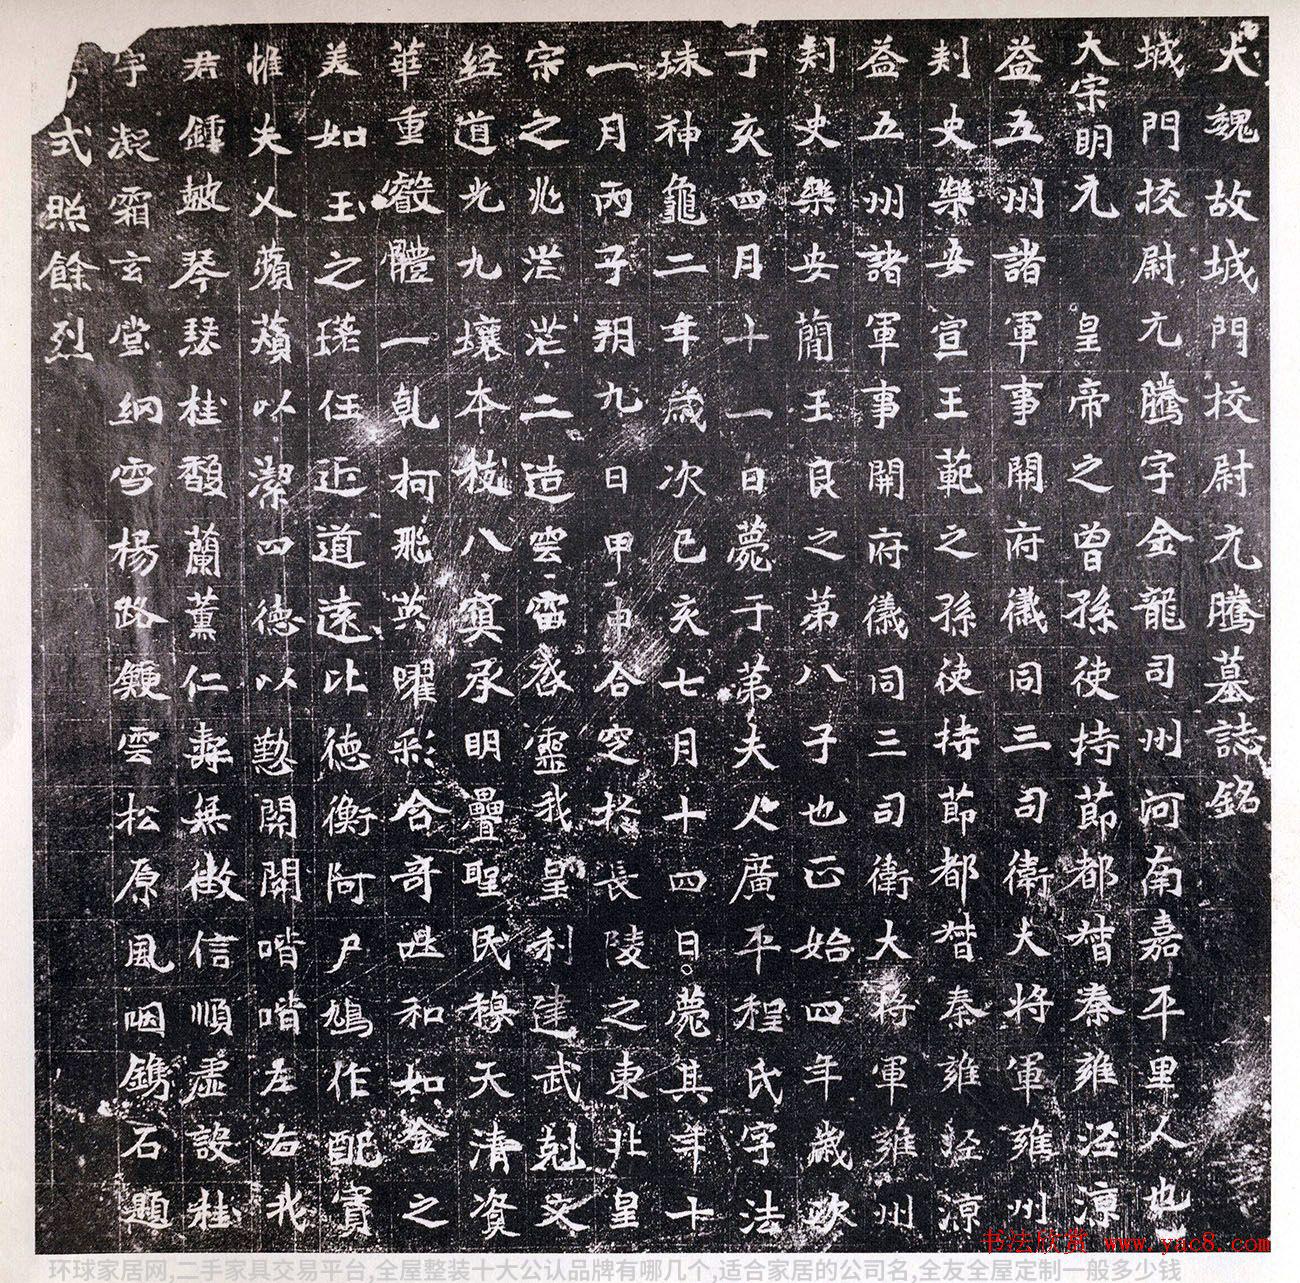 大魏故城門校尉元騰墓誌銘
城門校尉元騰字金龍司州河南嘉平里人也
大宗明元 皇帝之曾孫使持節都督秦雍涇涼
益五州諸軍事開府儀同三司衛大將軍雍州
刺史樂安宣王範之孫使持節都督秦雍涇涼
益五州諸軍事開府儀同三司衛大將軍雍州
刺史樂安蕑王良之第八子也正始四年歲次
丁亥四月十一日薨于第夫人廣平程氏字法
珠神龜二年歲次己亥七月十四日薨其年十
一月丙子朔九日甲申合窆於長陵之東北皇
宗之兆茫茫二造雲雷啓靈我皇利建武剋文
經道光九壤本枝八㝠承明疊聖民穆天清資
華重叡體一乹柯飛英曜彩含奇 和如金之
美如玉之瑛任近道遠比德衡阿尸鳩作配寶
惟夫人蘋蘩以潔四德以懃開關喈喈左右我
君鍾鼓琴瑟桂馥蘭薰仁壽無徵信順虛設桂
宇凝霜玄堂納雪楊路鏁雲松原風咽鐫石題
式照餘烈
书法欣赏 www.yac8.com
环球家居网,二手家具交易平台,全屋整装十大公认品牌有哪几个,适合家居的公司名,全友全屋定制一般多少钱